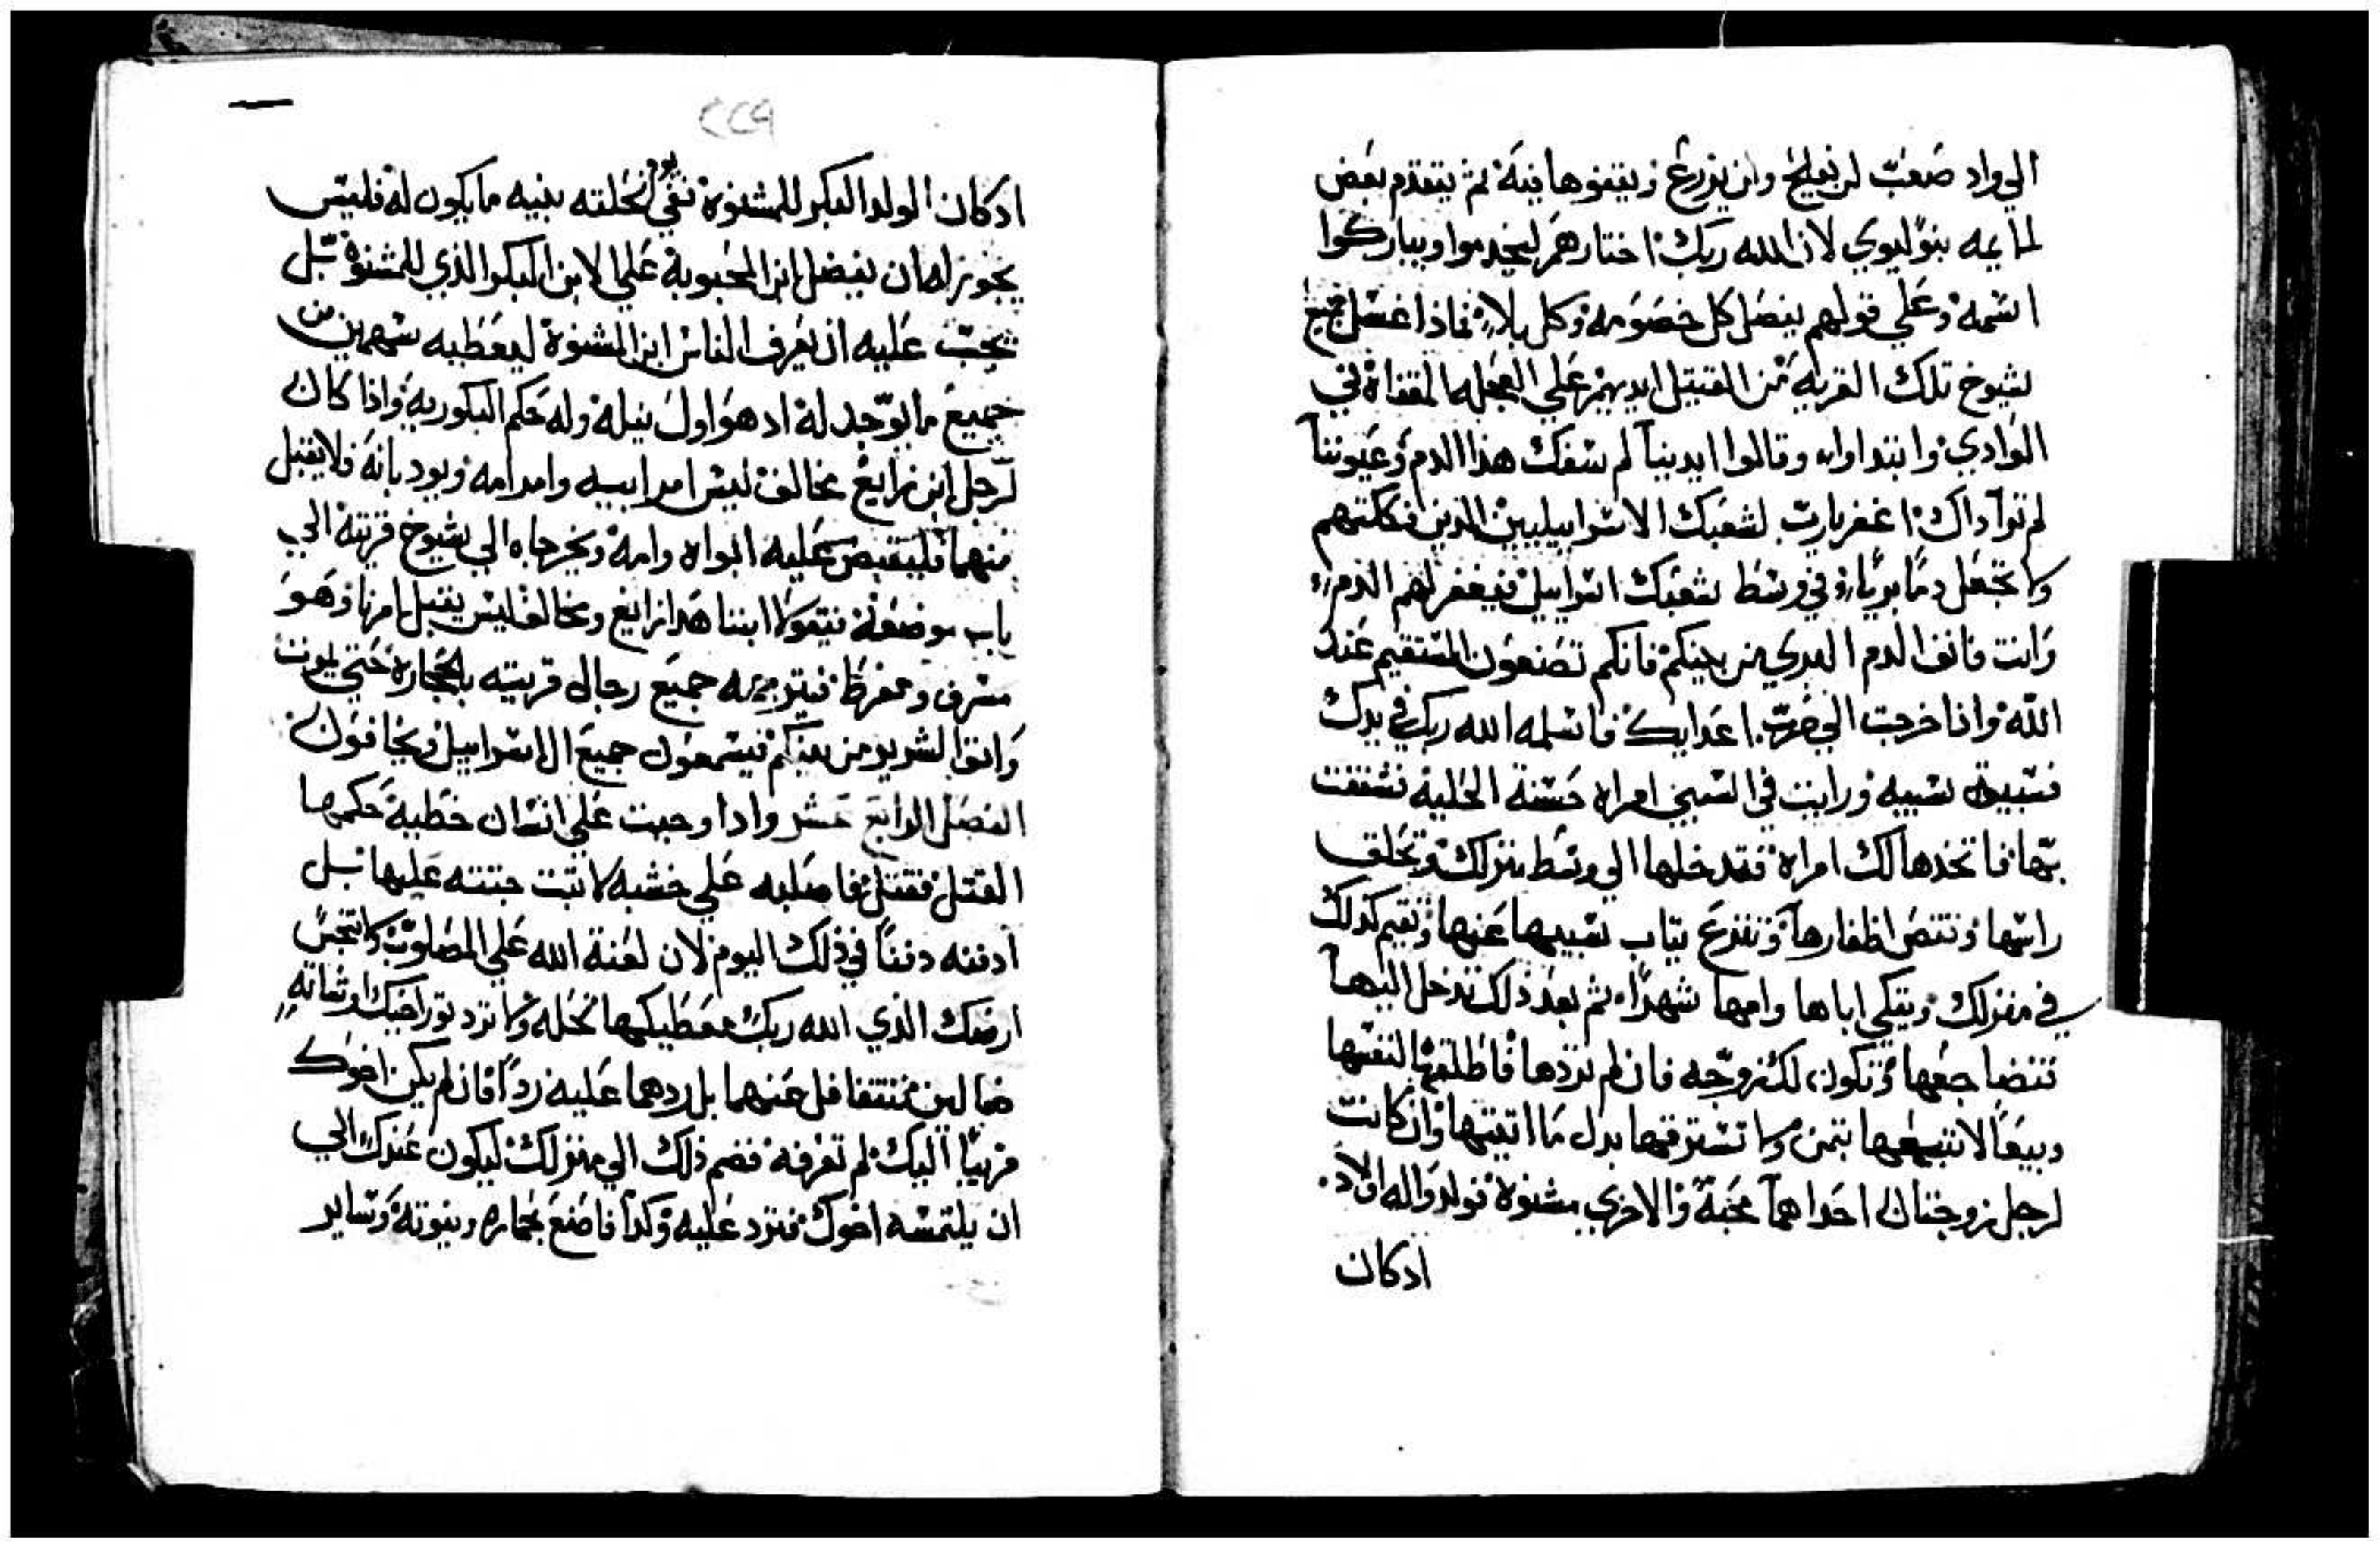 الي واد صعب لن يفلح ولن يزرع ويقفوها فيه ثم يتقدم بعض
لما يمه بنو ليوي لان الله ربك اختارهم ليخدموا ويباركوا
اسمه وعلي قولهم يفصل كل خصومه وكل بلاء فاذا غسل جميع
شيوخ تلك القريه من القتيل ايديهم علي العجله المقفاه في
الوادي وابتداوا وقالوا ايدينا لم تسفك هذا الدم وعيوننا
لم تر اداك اغفر يارب لشعبك الاسراييليين الذين فككتهم
ولا تجعل دما بريا في وسط شعبك اسراييل فيغفر لهم الدم
وانت فانف الدم البري من بينكم فانكم تصنعون المستقيم عند
الله واذا خرجت الي حرب اعدايك فاسلمه الله ربك في يدك
فسبيت سبيه ورايت في السبي امراه حسنة الحليه فشغفت
بها فاتخدها لك امراه فتدخلها الي وسط منزلك وتحلق
راسها وتقص اظفارها وتنزع تياب سبيها عنها وتقيم كدلك
في منزلك وتبكي اباها وامها شهرا ثم بعد ذلك تدخل اليها
تتضاجعها وتكون لك زوجه فان لم تردها فاطلقها لنفسها
وبيعا لا تبيعها بتمن ولا تسترقها بدل ما اتيتها وان كانت
لرجل زوجتان احداهما محبة والاخري مشنوة فولدوا له اولاد
ادكان
٢٢٩
ادكان الولد البكر للمشنوة ففي يوم نحلته بنيه ما يكون له فليس
يجوز له ان يفضل ابن المحبوبة علي الابن البكر الذي للمشنوة بل
يجب عليه ان يعرف الناس ابن المشنوة ليعطيه سهمين من
جميع ما يوجد له اد هو اول نيله وله حكم البكوريه واذا كان
لرجل ابن زايغ مخالف ليس امر ابيه وامر امه ويودبانه فلا يقبل
منهما فليقبض عليه ابواه وامه ويخرجاه الي شيوخ قريته الي
باب موضعه فيقولا ابننا هدا زايغ ومخالف ليس يقبل امرنا وهو
مسرف ومفرط فيترجمه جميع رجال قريته بالحجاره حتي يموت
وانفوا الشرير من بينكم فيسمعون جميع الاسراييل ويخافون
الفصل الرابع عشر وادا وجبت علي انسان خطية حكمها
القتل فقتل فاصلبه علي خشبه لا تبت جتته عليها بل
ادفنه دفنا في ذلك اليوم لان لعنة الله علي المصلوب ولا تنجس
ارضك الذي الله ربك معطيكها نحله ولا ترد تور اخيك او شاته
ضالين فتتغافل عنهما بل ردهما عليه ردا فان لم يكن اخوك
قريبا اليك لم تعرفه فضم ذلك الي منزلك ليكون عندك الي
ان يلتمسه اخوك فترد عليه وكدا فاصنع بحماره وبيوته وساير